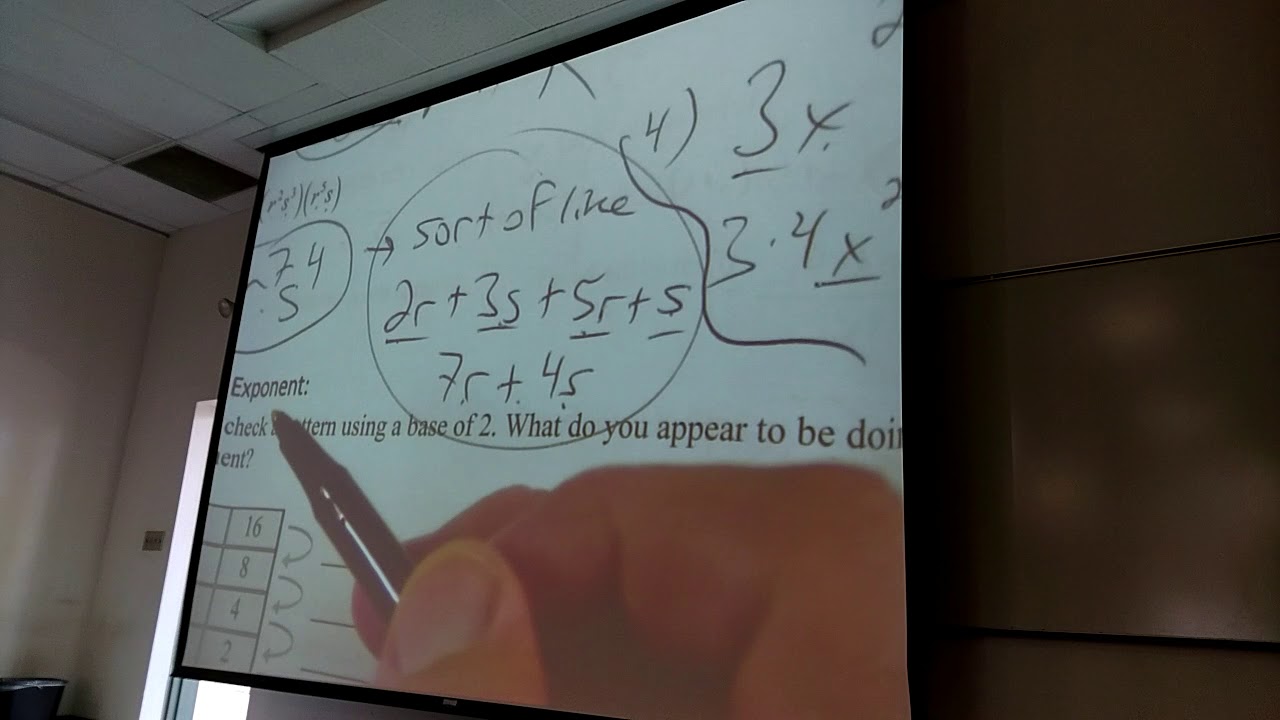 4) 3x
r²s³)(r⁵s)
r⁷s⁴
→ sort of like
3·4x
2r + 3s + 5r + s
7r + 4s
Exponent:
check pattern using a base of 2. What do you appear to be doi
ent?
16
8
4
2